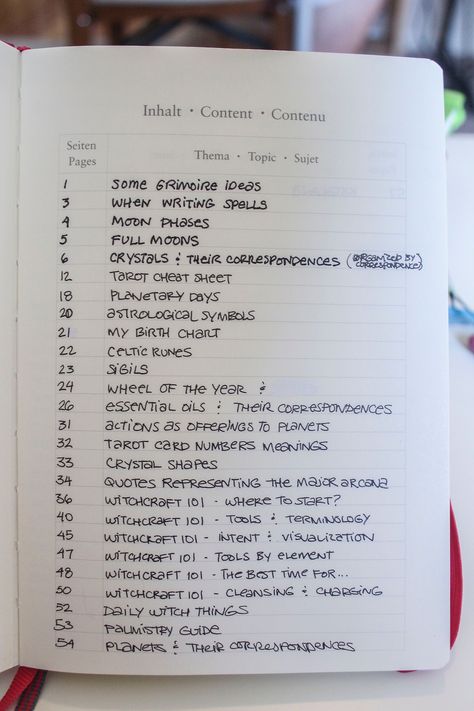 Inhalt · Content · Contenu
Seiten
Pages
Thema · Topic · Sujet
1 SOME GRIMOIRE IDEAS
3 WHEN WRITING SPELLS
4 MOON PHASES
5 FULL MOONS
6 CRYSTALS & THEIR CORRESPONDENCES (ORGANIZED BY CORRESPONDENCE)
12 TAROT CHEAT SHEET
18 PLANETARY DAYS
20 ASTROLOGICAL SYMBOLS
21 MY BIRTH CHART
22 CELTIC RUNES
23 SIGILS
24 WHEEL OF THE YEAR &
26 ESSENTIAL OILS & THEIR CORRESPONDENCES
31 ACTIONS AS OFFERINGS TO PLANETS
32 TAROT CARD NUMBERS MEANINGS
33 CRYSTAL SHAPES
34 QUOTES REPRESENTING THE MAJOR ARCANA
36 WITCHCRAFT 101 - WHERE TO START?
40 WITCHCRAFT 101 - TOOLS & TERMINOLOGY
45 WITCHCRAFT 101 - INTENT & VISUALIZATION
47 WITCHCRAFT 101 - TOOLS BY ELEMENT
48 WITCHCRAFT 101 - THE BEST TIME FOR...
50 WITCHCRAFT 101 - CLEANSING & CHARGING
52 DAILY WITCH THINGS
53 PALMISTRY GUIDE
54 PLANETS & THEIR CORRESPONDENCES